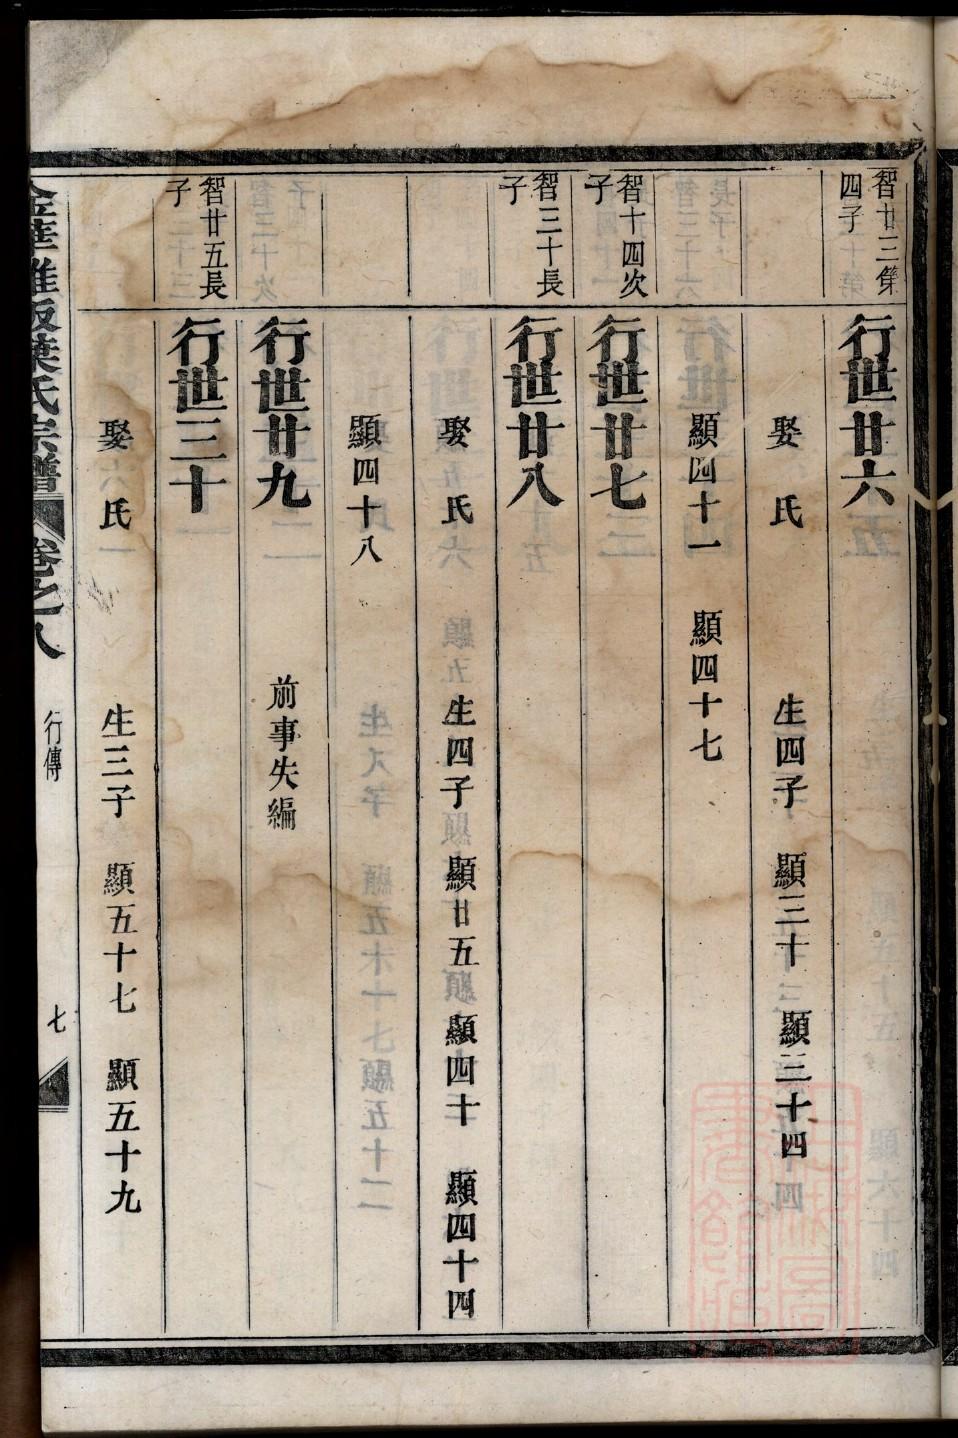 智廿三第
四子
行世廿六
娶 氏 生四子 顯三十 顯三十四
顯四十一 顯四十七
智十四次
子
行世廿七
智三十長
子
行世廿八
娶 氏 生四子 顯廿五 顯四十 顯四十四
顯四十八
行世廿九
前事失編
智廿五長
子
行世三十
娶 氏 生三子 顯五十七 顯五十九
葉氏宗譜 卷之八 行傳 七